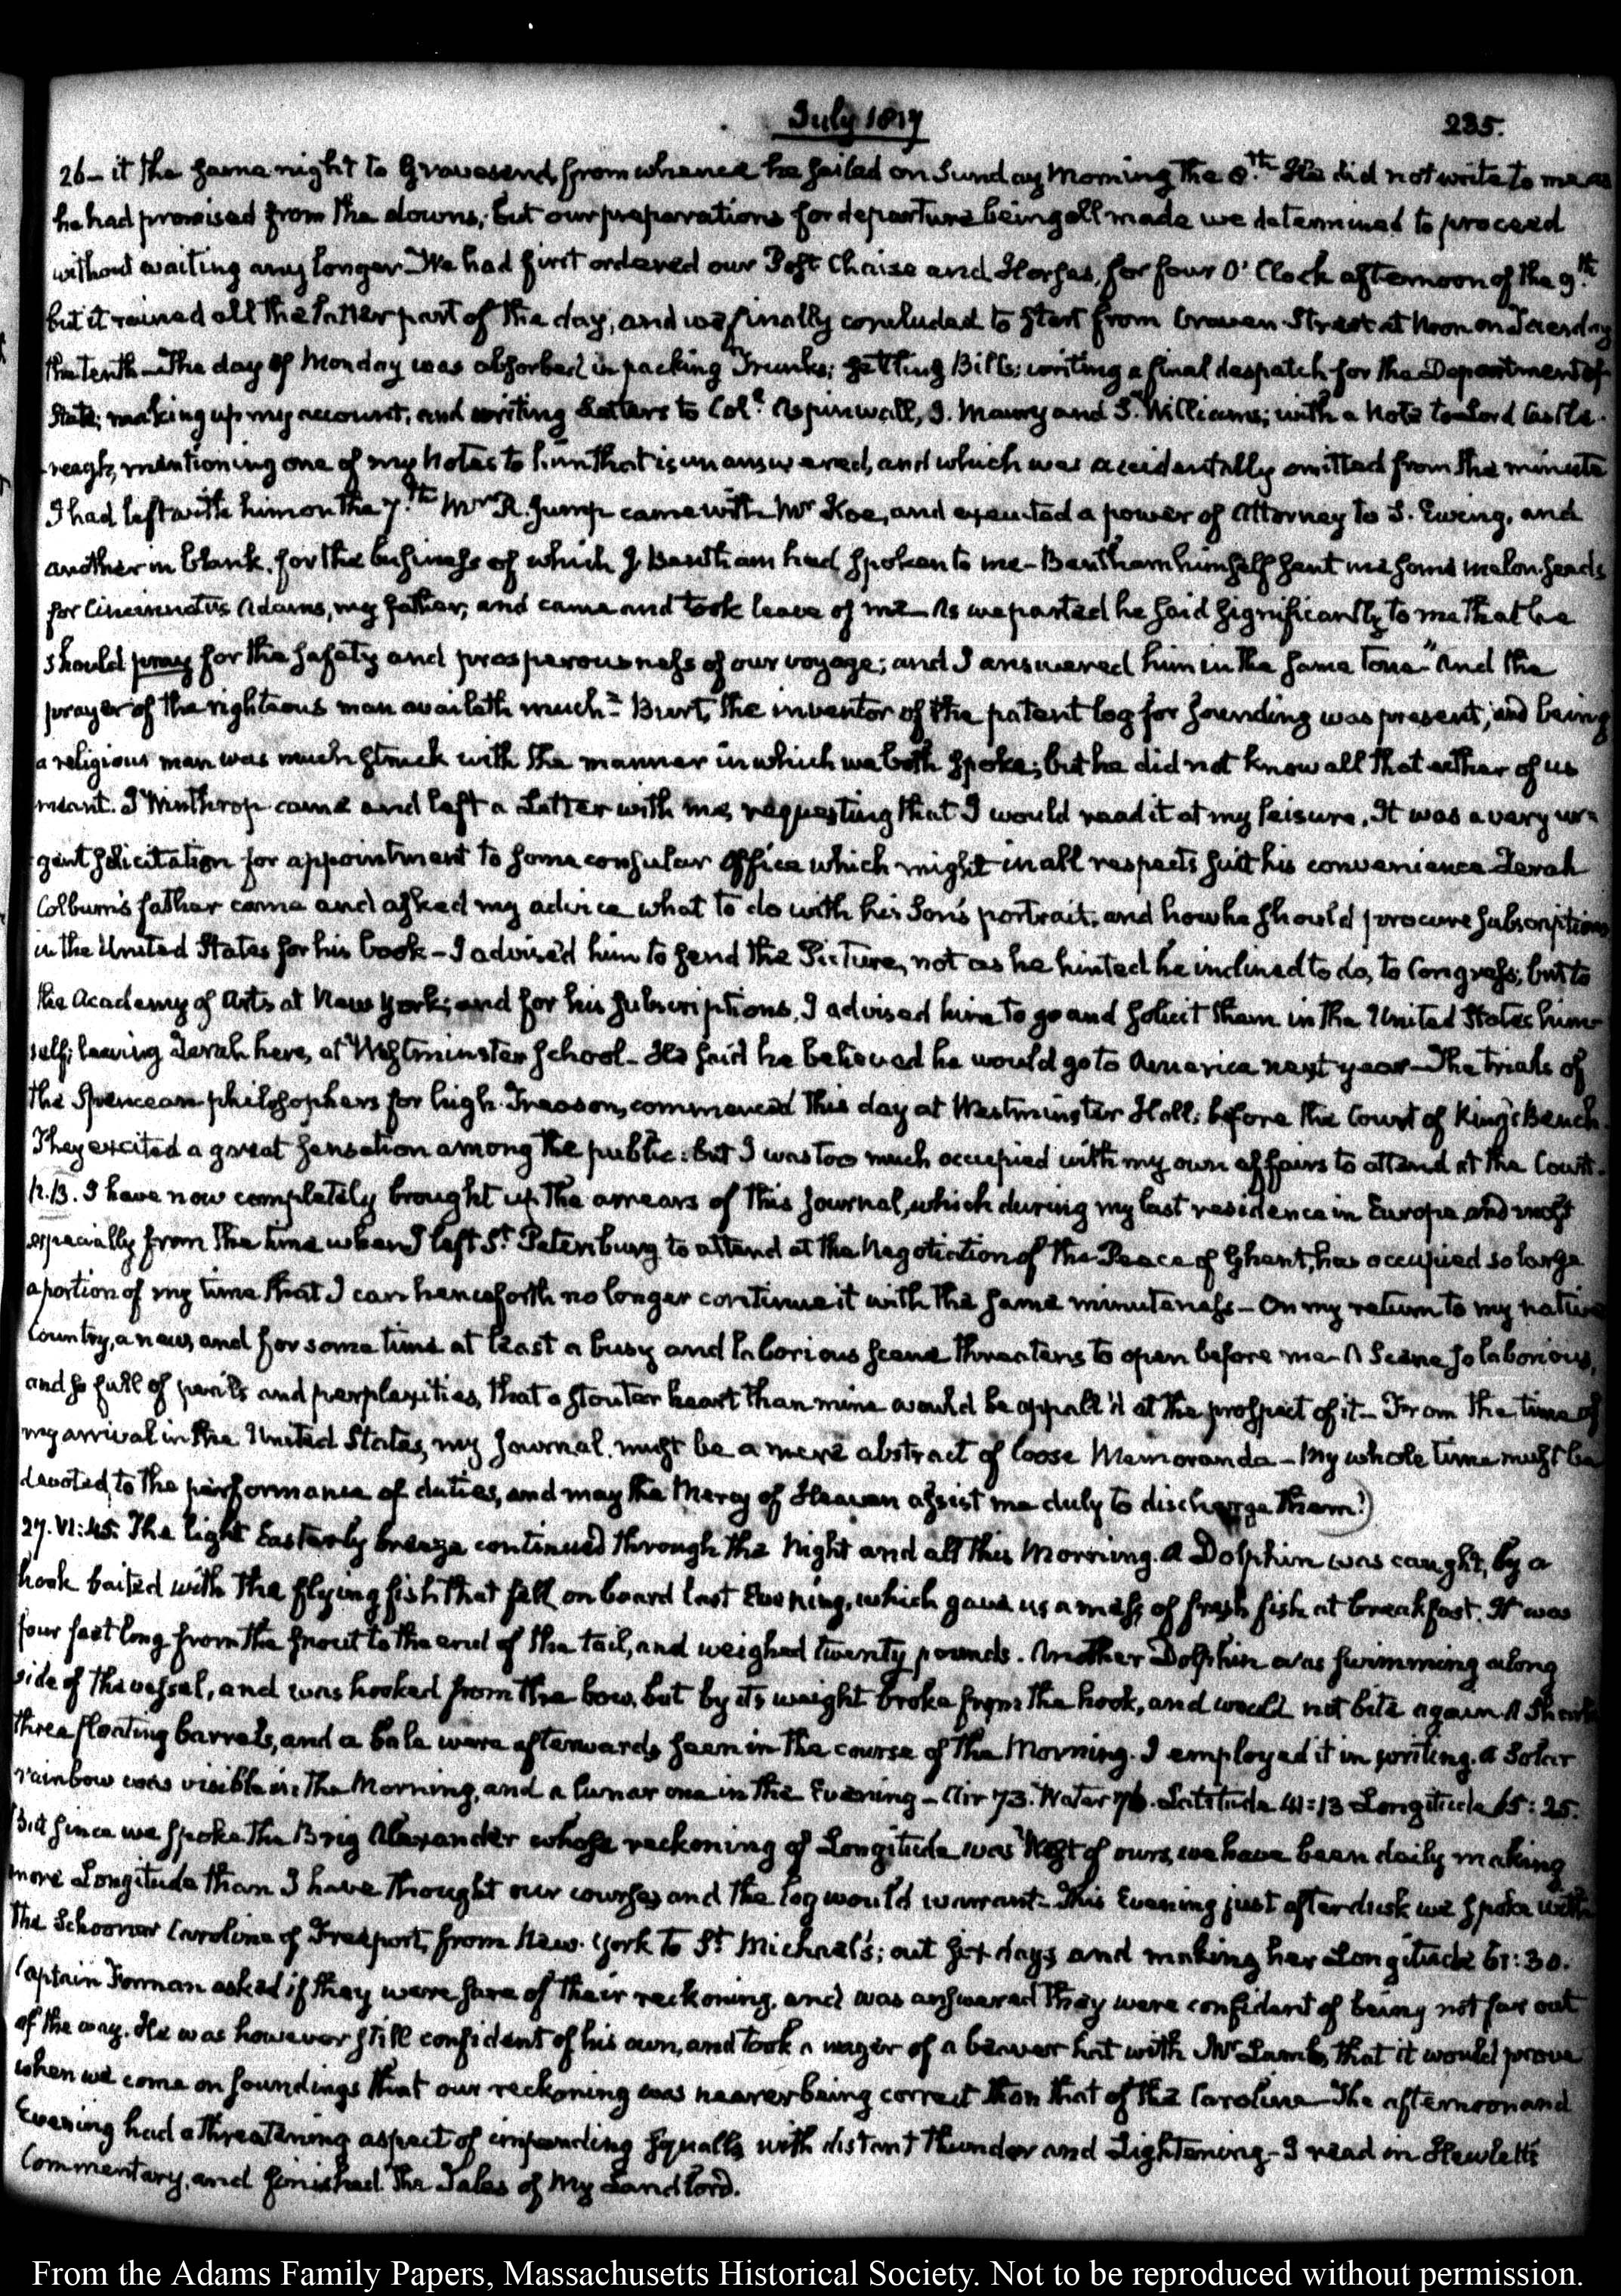 July 1817
235.
26 – it the same night to Gravesend, from whence he sailed on Sunday Morning the 8.th He did not write to me as
he had promised from the downs; but our preparations for departure being all made we determined to proceed
without waiting any longer. We had first ordered our Post Chaise and Horses, for four O'Clock afternoon of the 9.th
but it rained all the latter part of the day, and we finally concluded to start from Craven Street at Noon on Tuesday
the tenth – The day of Monday was absorbed in packing Trunks; settling Bills; writing a final despatch for the Department of
State; making up my account, and writing Letters to Col.l Aspinwall, J. Maury and S. Williams; with a Note to Lord Castle-
reagh, mentioning one of my Notes to him that is unanswered, and which was accidentally omitted from the minute
I had left with him on the 7.th Mr R. Jump came with Mr Koe, and executed a power of Attorney to S. Ewing, and
another in blank, for the business of which J. Bentham had spoken to me – Bentham himself sent me some melon seeds
for Cincinnatus Adams, my father; and came and took leave of me – As we parted he said significantly to me that he
should pray for the safety and prosperousness of our voyage; and I answered him in the same tone – "And the
prayer of the righteous man availeth much" – Burt, the inventor of the patent log for sounding was present, and being
a religious man was much struck with the manner in which we both spoke; but he did not know all that either of us
meant. J Winthrop came and left a Letter with me, requesting that I would read it at my leisure. It was a very ur-
gent solicitation for appointment to some consular Office which might in all respects suit his convenience. Zerah
Colburn's father came and asked my advice what to do with his Son's portrait, and how he should procure subscriptions
in the United States for his book – I advised him to send the Picture, not as he hinted he inclined to do, to Congress; but to
the Academy of Arts at New York; and for his subscriptions, I advised him to go and solicit them in the United States him-
self; leaving Zerah here, at Westminster School – He said he believed he would go to America next year – The trials of
the Spencean philosophers for high Treason, commenced this day at Westminster Hall; before the Court of King's Bench.
They excited a great sensation among the public: but I was too much occupied with my own affairs to attend at the Court.
N.B. I have now completely brought up the arrears of this Journal, which during my last residence in Europe, and most
especially from the time when I left St Petersburg to attend at the Negotiation of the Peace of Ghent, has occupied so large
a portion of my time that I can henceforth no longer continue it with the same minuteness – On my return to my native
Country, a new, and for some time at least a busy and laborious scene threatens to open before me – A Scene so laborious,
and so full of perils and perplexities, that a stouter heart than mine would be appall'd at the prospect of it – From the time of
my arrival in the United States, my Journal must be a mere abstract of loose Memoranda – My whole time must be
devoted to the performance of duties, and may the Mercy of Heaven assist me duly to discharge them!)
27. VI:45. The light Easterly breeze continued through the Night and all this Morning. A Dolphin was caught, by a
hook baited with the flying fish that fell on board last Evening, which gave us a mess of fresh fish at breakfast. It was
four feet long from the snout to the end of the tail, and weighed twenty pounds. Another Dolphin was swimming along
side of the vessel, and was hooked from the bow, but by its weight broke from the hook, and would not bite again. A Shark
three floating barrels, and a bale were afterwards seen in the course of the Morning. I employed it in writing. A Solar
rainbow was visible in the Morning, and a lunar one in the Evening – Air 73. Water 76. Latitude 41:13 Longitude 65:25.
But since we spoke the Brig Alexander whose reckoning of Longitude was West of ours, we have been daily making
more Longitude than I have thought our courses and the log would warrant – This Evening just after dusk we spoke with
the Schooner Caroline of Freeport, from New York to St Michael's; out six days and making her Longitude 61:30.
Captain Forman asked if they were sure of their reckoning, and was answered they were confident of being not far out
of the way. He was however still confident of his own, and took a wager of a beaver hat with Mr Lamb, that it would prove
when we come on soundings that our reckoning was nearer being correct than that of the Caroline – The afternoon and
Evening had a threatening aspect of impending squalls, with distant thunder and Lightening – I read in Hewlett's
Commentary, and finished the Tales of My Landlord.
From the Adams Family Papers, Massachusetts Historical Society. Not to be reproduced without permission.